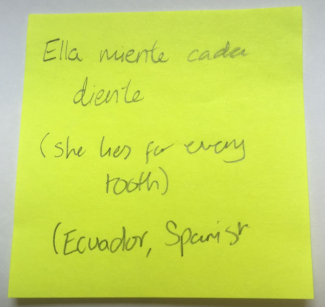 Ella miente cada
diente
(she lies for every
tooth)
(Ecuador, Spanish